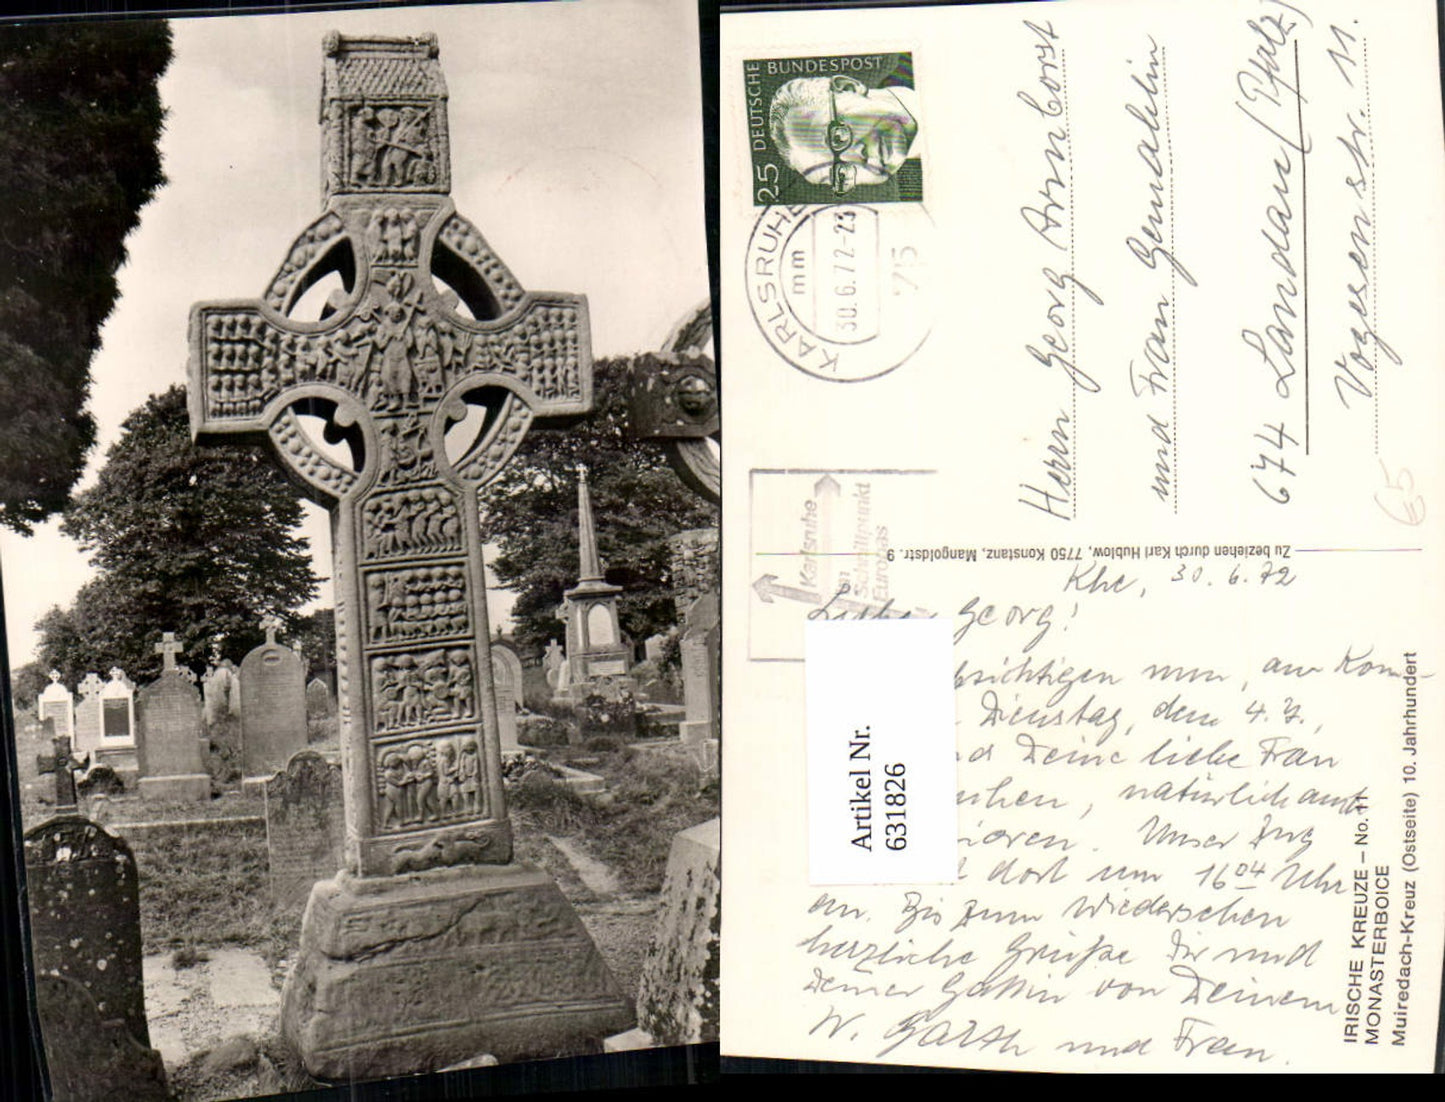 DEUTSCHE BUNDESPOST
25
KARLSRUHE
mm
30.6.72-23
75
Karlsruhe
am
Schnittpunkt
Europas
Herrn Georg Armborst
und Frau Gemahlin
674 Landau (Pfalz)
Vogesenstr. 11.
€5
Zu beziehen durch Karl Hublow, 7750 Konstanz, Mangoldstr. 9
Khe, 30.6.72
Georg!
bsichtigen nun, am Kom-
Dienstag, dem 4.7.,
nd Deine liebe Frau
uchen, natürlich
Unser Zug
dort um 16 04 Uhr
an. Bis zum Wiedersehen
herzliche Grüße Dir und
Deiner Gattin von Deinem
W. Barth und Frau.
Artikel Nr.
631826
IRISCHE KREUZE – No. 11
MONASTERBOICE
Muiredach-Kreuz (Ostseite) 10. Jahrhundert